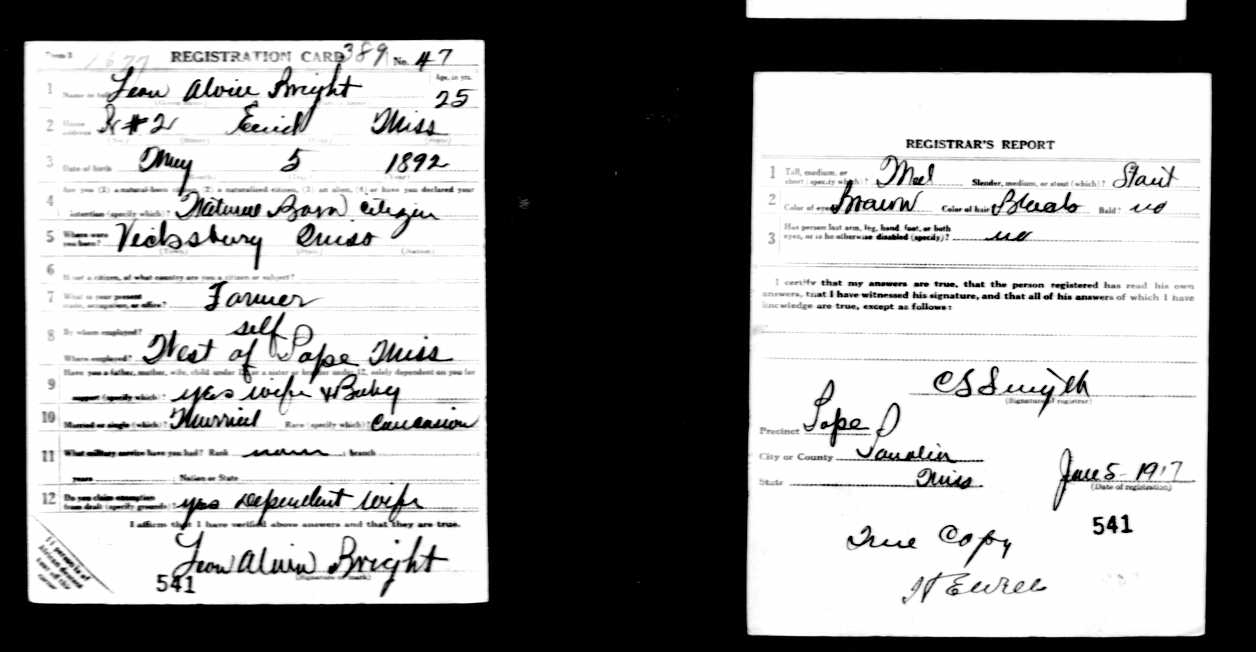 1677 REGISTRATION CARD 389 No. 47
1 Name in full Leon Alvin Bright Age, in yrs. 25
2 Home address R#2 Enid Miss
3 Date of birth May 5 1892
Are you (1) a natural-born citizen, (2) a naturalized citizen, (3) an alien, (4) or have you declared your
4 intention (specify which)? Natural Born Citizen
5 Where were you born? Vicksburg Miss
6 If not a citizen, of what country are you a citizen or subject?
7 What is your present trade, occupation, or office? Farmer
8 By whom employed? self
Where employed? West of Pope Miss
Have you a father, mother, wife, child under 12, or a sister or brother under 12, solely dependent on you for
9 support (specify which)? yes wife & Baby
10 Married or single (which)? Married Race (specify which)? Caucasion
11 What military service have you had? Rank none ; branch
years Nation or State
12 Do you claim exemption from draft (specify grounds)? yes dependent wife
I affirm that I have verified above answers and that they are true.
Leon Alvin Bright
(Signature or mark)
541
If person is of African descent tear off this corner
REGISTRAR'S REPORT
1 Tall, medium, or short (specify which)? Med Slender, medium, or stout (which)? Stout
2 Color of eyes Brown Color of hair Black Bald? no
3 Has person lost arm, leg, hand, foot, or both
eyes, or is he otherwise disabled (specify)? no
I certify that my answers are true, that the person registered has read his own
answers, that I have witnessed his signature, and that all of his answers of which I have
knowledge are true, except as follows:
C S Smyth
(Signature of registrar)
Precinct Pope
City or County Panolia
State Miss
June 5 - 1917
(Date of registration)
541
True Copy